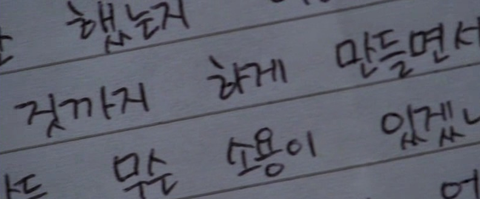 했는지
짓까지 하게 만들면서
무슨 소용이 있겠
어